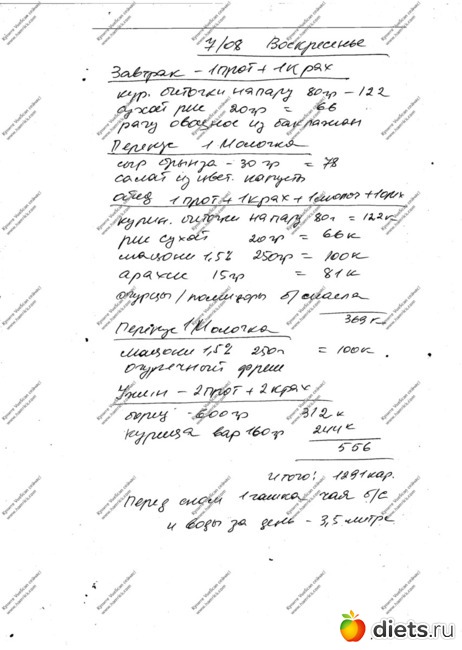 7/08 Воскресенье
Завтрак - 1 прот + 1 крах
кур. биточки на пару 80гр - 122
сухой рис 20гр = 66
рагу овощное из баклажан
Перекус 1 Молочка
сыр брынза - 30гр = 78
салат из цвет. капусты
обед 1 прот + 1 крах + 1 молоч + 1 орех
курин. биточки на пару 80г = 122к
рис сухой 20гр = 66к
мацони 1,5% 250гр = 100к
арахис 15гр = 81к
огурцы / помидоры б/масла
369к
Перекус 1 Молочка
мацони 1,5% 250г = 100к
огуречный фреш
Ужин - 2 прот + 2 крах
борщ - 600гр 312к
курица вар 160гр 244к
556
Итого: 1291 кал.
Перед сном 1 чашка чая б/с
и воды за день - 3,5 литра
diets.ru